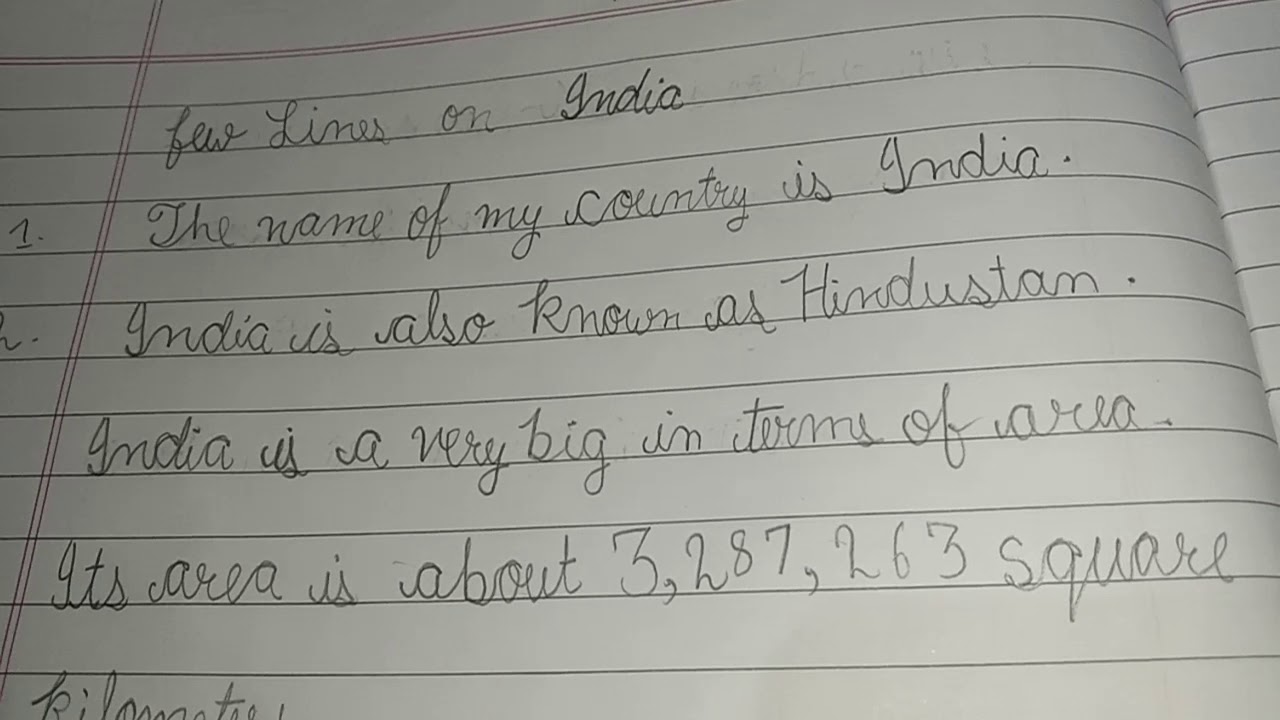 few Lines on India
1. The name of my country is India.
2. India is also known as Hindustan.
India is a very big in terms of area.
Its area is about 3,287,263 square